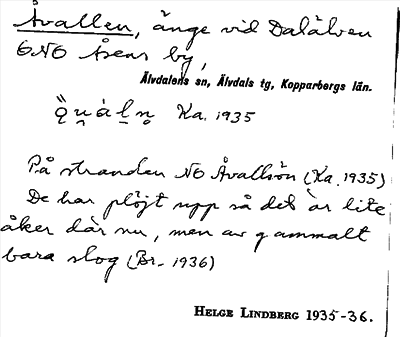 Åvallen, änge vid Dalälven
ONO Åsens by,
Älvdalens sn, Älvdals tg, Kopparbergs län.
Ka. 1935
På stranden NO Åvallsön (Ka. 1935)
De har plöjt upp så det är lite
åker där nu, men av gammalt
bara slog (Br. 1936)
HELGE LINDBERG 1935-36.